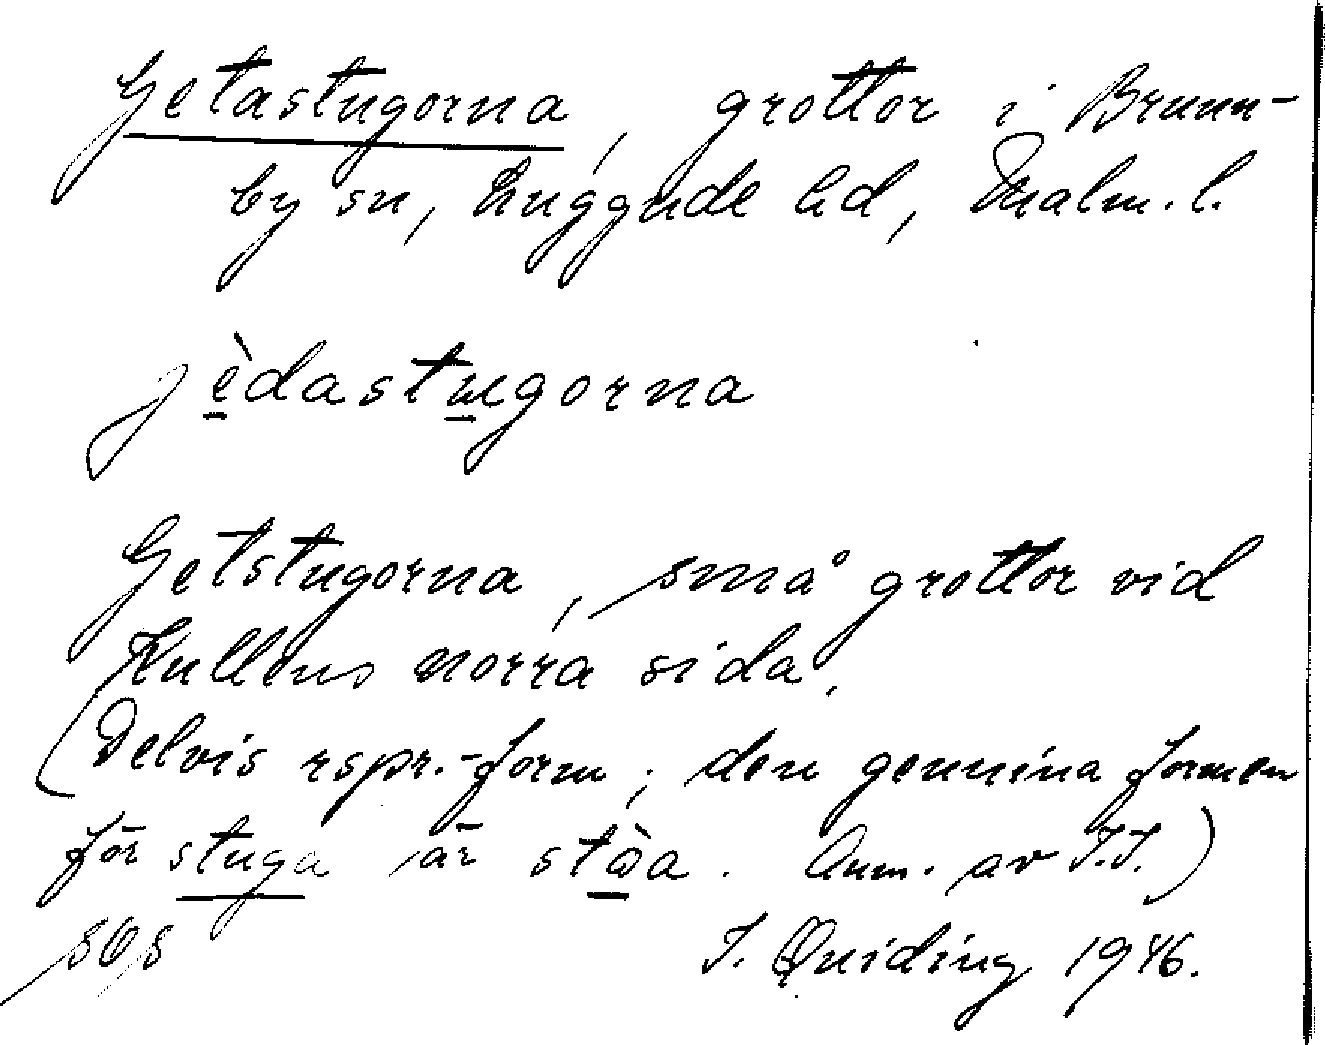 Getastugorna, grottor i Brunn-
by sn, Luggude hd, Malm. l.
jèdastugorna
Getstugorna, små grottor vid
Kullens norra sida.
(Delvis rspr.-form; den genuina formen
för stuga är
Anm. av I.I.)
sOs I. Quiding 1946.